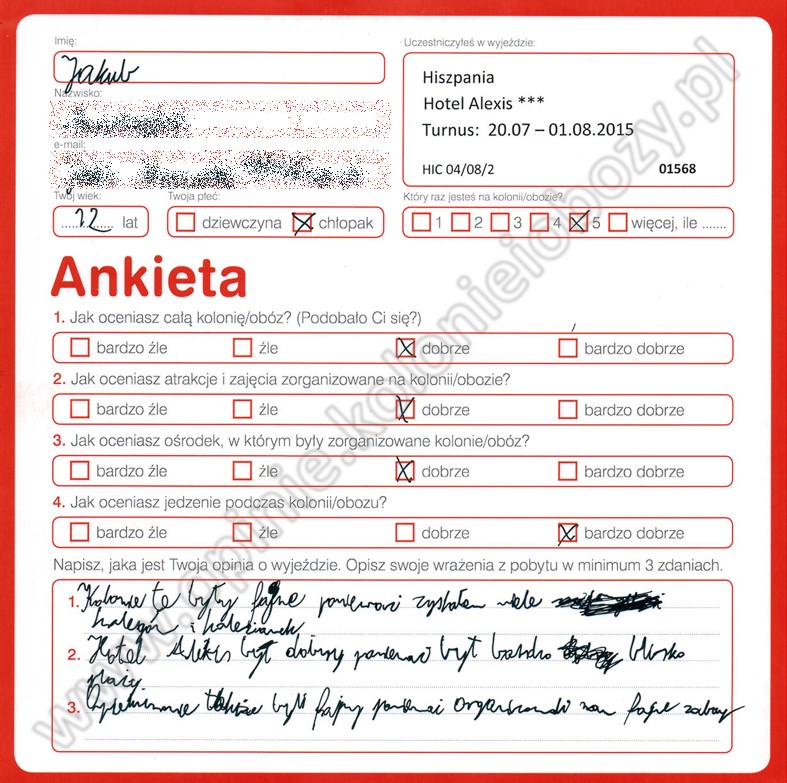 Imię:
Jakub
Nazwisko:
e-mail:
Twój wiek:
12 lat
Twoja płeć:
dziewczyna chłopak
Uczestniczyłeś w wyjeździe:
Hiszpania
Hotel Alexis ***
Turnus: 20.07 – 01.08.2015
HIC 04/08/2 01568
Który raz jesteś na kolonii/obozie?
1 2 3 4 5 więcej, ile .......
Ankieta
1. Jak oceniasz całą kolonię/obóz? (Podobało Ci się?)
bardzo źle źle dobrze bardzo dobrze
2. Jak oceniasz atrakcje i zajęcia zorganizowane na kolonii/obozie?
bardzo źle źle dobrze bardzo dobrze
3. Jak oceniasz ośrodek, w którym były zorganizowane kolonie/obóz?
bardzo źle źle dobrze bardzo dobrze
4. Jak oceniasz jedzenie podczas kolonii/obozu?
bardzo źle źle dobrze bardzo dobrze
Napisz, jaka jest Twoja opinia o wyjeździe. Opisz swoje wrażenia z pobytu w minimum 3 zdaniach.
1. Kolonie te były fajne ponieważ zyskałem wiele
kolegów i koleżanek
2. Hotel Aleksis był dobry ponieważ był bardzo blisko
plaży
3. także byli fajny ponieważ organizowali nam fajne zabawy
www.opinie.kolonieiobozy.pl